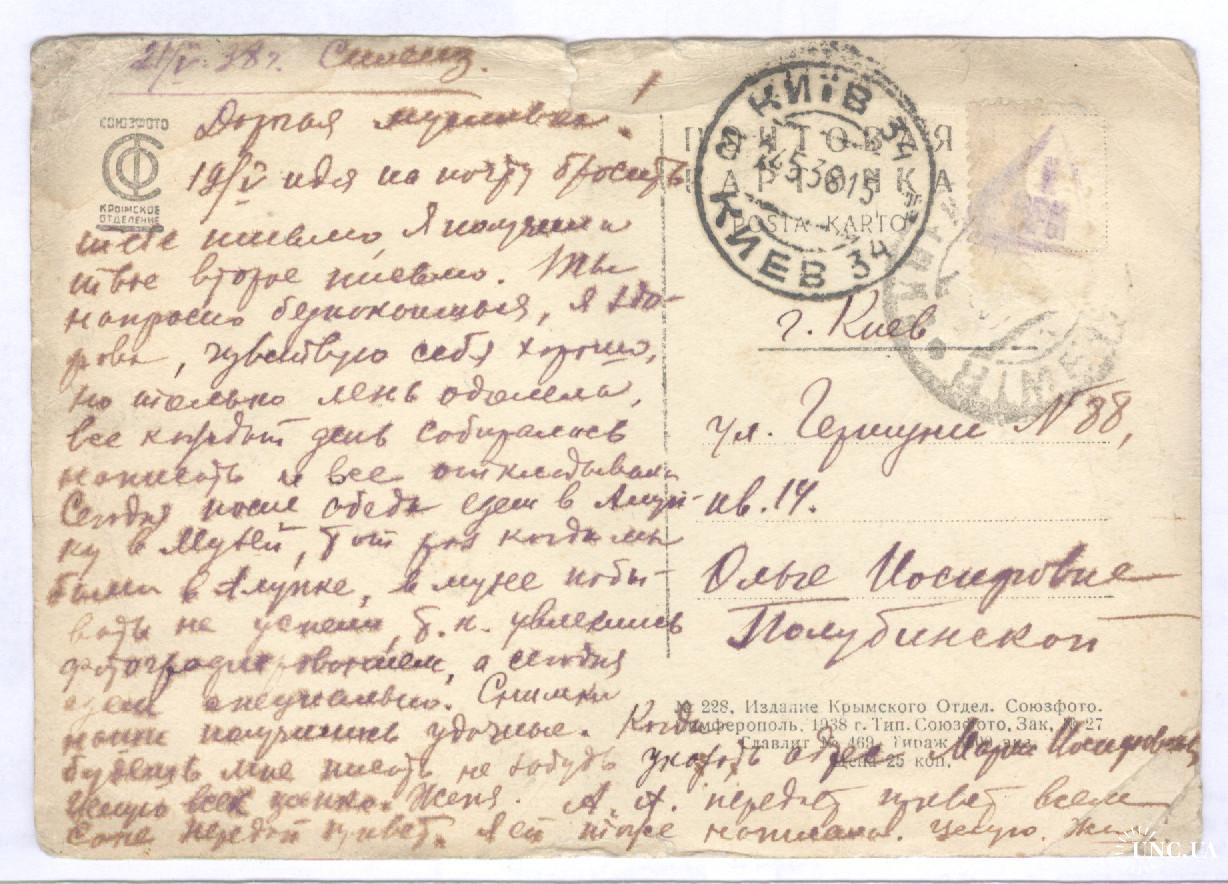 21/V 38 г. Симеиз.
Дорогая мусинька.
19/V идя на почту бросить
тебе письмо я получила
твое второе письмо. Ты
напрасно беспокоишься, я здо-
рова, чувствую себя хорошо,
но только лень одолела,
все каждый день собиралась
написать и все откладывала
Сегодня после обеда едем в Алуп-
ку в музей, тот раз когда мы
были в Алупке, в музее побы-
вать не успели, т.к. увлеклись
фотографированием, а сегодня
едем специально. Снимки
наши получились удачные. Когда
будешь мне писать не забудь указать адрес Марии Иосифовны,
Целую всех Женя. А. А. передает привет всем
Соне передай привет. Я ей тоже написала. Целую. Женя
СОЮЗФОТО
КРЫМСКОЕ
ОТДЕЛЕНИЕ
ПОЧТОВАЯ
КАРТОЧКА
POŜTA KARTO
КИЇВ 34
24 5 38
КИЕВ 34
г. Киев
ул. Гершуни № 88,
кв. 14.
Ольге Иосифовне
Полубинской
№ 228, Издание Крымского Отдел. Союзфото.
Симферополь, 1938 г. Тип. Союзфото, Зак. № 27
Главлит № 469. Тираж
Цена 25 коп.
UNC.UA